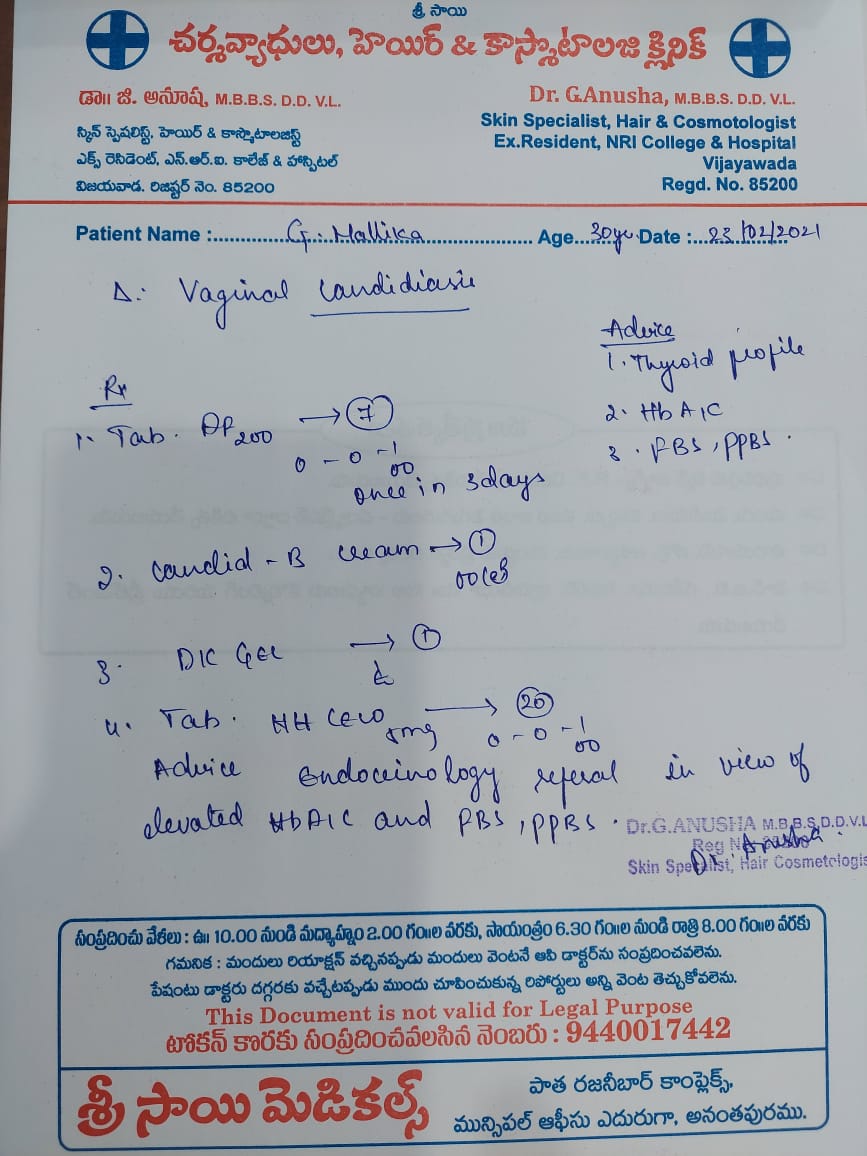 శ్రీ సాయి
చర్మవ్యాధులు, హెయిర్ & కాస్మోటాలజి క్లినిక్
డా॥ జి. అనూష, M.B.B.S. D.D. V.L.
స్కిన్ స్పెషలిస్ట్, హెయిర్ & కాస్మోటాలజిస్ట్
ఎక్స్ రెసిడెంట్, ఎన్.ఆర్.ఐ. కాలేజ్ & హాస్పిటల్
విజయవాడ. రిజిష్టర్ నెం. 85200
Dr. G.Anusha, M.B.B.S. D.D. V.L.
Skin Specialist, Hair & Cosmotologist
Ex.Resident, NRI College & Hospital
Vijayawada
Regd. No. 85200
Patient Name : G. Mallika Age 30yr Date : 23/02/2021
Δ: Vaginal Candidiasis
Advice
1. Thyroid profile
2. HbA1C
3. FBS, PPBS.
Rx
1. Tab. 200 → 7
0-0-1
once in 3days
2. Candid-B cream → 1
3. GEL → 1
4. Tab. 5mg → 20
0-0-1
Advice Endocrinology referal in view of
elevated HbA1C and FBS, PPBS.
Dr.G.ANUSHA M.B.B.S,D.D.V.L
Reg
Dr. Anusha
Skin Specialist, Hair Cosmetologis
సంప్రదించు వేళలు : ఉ॥ 10.00 నుండి మధ్యాహ్నం 2.00 గం॥ల వరకు, సాయంత్రం 6.30 గం॥ల నుండి రాత్రి 8.00 గం॥ల వరకు
గమనిక : మందులు రియాక్షన్ వచ్చినప్పుడు మందులు వెంటనే ఆపి డాక్టర్‌ను సంప్రదించవలెను.
పేషంటు డాక్టరు దగ్గరకు వచ్చేటప్పుడు ముందు చూపించుకున్న రిపోర్టులు అన్ని వెంట తెచ్చుకోవలెను.
This Document is not valid for Legal Purpose
టోకన్ కొరకు సంప్రదించవలసిన నెంబరు : 9440017442
శ్రీ సాయి మెడికల్స్
పాత రజనీబార్ కాంప్లెక్స్,
మున్సిపల్ ఆఫీసు ఎదురుగా, అనంతపురము.